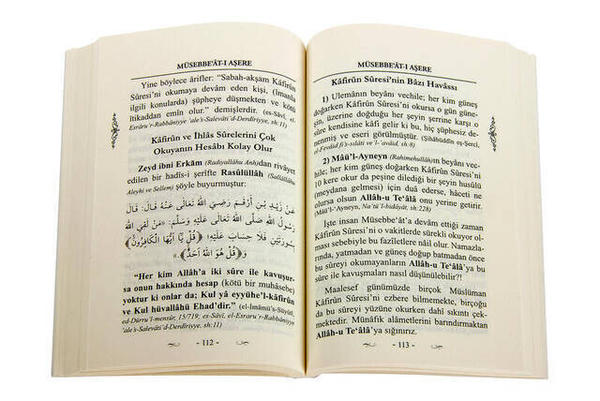 MÜSEBBE'ÂT-I AŞERE
Yine böylece ârifler: "Sabah-akşam Kâfirûn
Sûresi'ni okumaya devam eden kişi, (îmanla
ilgili konularda) şüpheye düşmekten ve kötü
îtikaddan emîn olur." demişlerdir. (es-Sâvî, el-
Esraru'r-Rabbâniyye 'ale's-Salevâti'd-Derdîriyye, sh:11)
Kâfirûn ve İhlâs Sûrelerini Çok
Okuyanın Hesâbı Kolay Olur
Zeyd ibni Erkâm (Radıyallâhu Anh)dan rivâyet
edilen bir hadîs-i şerîfte Rasûlüllâh (Sallâllâhu
Aleyhi ve Sellem) şöyle buyurmuştur:
عَنْ زَيْدِ بْنِ أَرْقَمَ رَضِيَ اللهُ تَعَالَى عَنْهُ قَالَ: قَالَ
رَسُولُ اللهِ صَلَّى اللهُ تَعَالَى عَلَيْهِ وَسَلَّمَ: «مَنْ لَقِيَ اللهَ
بِسُورَتَيْنِ فَلَا حِسَابَ عَلَيْهِ؛ ﴿قُلْ يَا أَيُّهَا الْكَافِرُونَ﴾
وَ﴿قُلْ هُوَ اللهُ أَحَدٌ﴾.»
"Her kim Allâh'a iki sûre ile kavuşur-
sa onun hakkında hesap (kötü bir muhasebe)
yoktur ki onlar da; Kul yâ eyyühe'l-kâfirûn
ve Kul hüvallâhü Ehad'dir." (el-İmâmü's-Süyûtî,
ed-Dürru'l-mensûr, 15/719; es-Sâvî, el-Esraru'r-Rabbâniyye
'ale's-Salevâti'd-Derdîriyye, sh:11)
- 112 -
MÜSEBBE'ÂT-I AŞERE
Kâfirûn Sûresi'nin Bâzı Havâssı
1) Ulemânın beyânı vechile; her kim güneş
doğarken Kâfirûn Sûresi'ni okursa o gün güne-
şin, üzerine doğduğu her şeyin şerrine karşı o
sûre kendisine kâfi gelir ki bu, hiç şüphesiz de-
nenmiş ve eseri görülmüştür. (Şihâbüddîn eş-Şercî,
el-Fevâid fi's-sılâti ve'l-'avâid, sh:8)
2) Mâü'l-Ayneyn (Rahimehullâh)ın beyânı vec-
hile; her kim güneş doğarken Kâfirûn Sûresi'ni
10 kere okur da peşine dilediği bir şeyin husûlü
(meydana gelmesi) için duâ ederse, hâceti ne
olursa olsun Allâh-u Te'âlâ onu yerine getirir.
(Mâü'l-'Ayneyn, Na'tü'l-bidâyât, sh:228)
İşte insan Müsebbe'ât'a devâm ettiği zaman
Kâfirûn Sûresi'ni o vakitlerde sürekli okuyor ol-
ması sebebiyle bu fazîletlere nâil olur. Namazla-
rında, yatmadan ve güneş doğup batmadan önce
bu sûreyi okumayanların Allâh-u Te'âlâ'ya bu
sûre ile kavuşmaları nasıl düşünülebilir?!
Maalesef günümüzde birçok Müslüman
Kâfirûn Sûresi'ni ezbere bilmemekte, birçoğu
da bu sûreyi yüzüne okurken dahi sıkıntı çek-
mektedir. Münâfık alâmetlerini barındırmaktan
Allâh-u Te'âlâ'ya sığınırız.
- 113 -